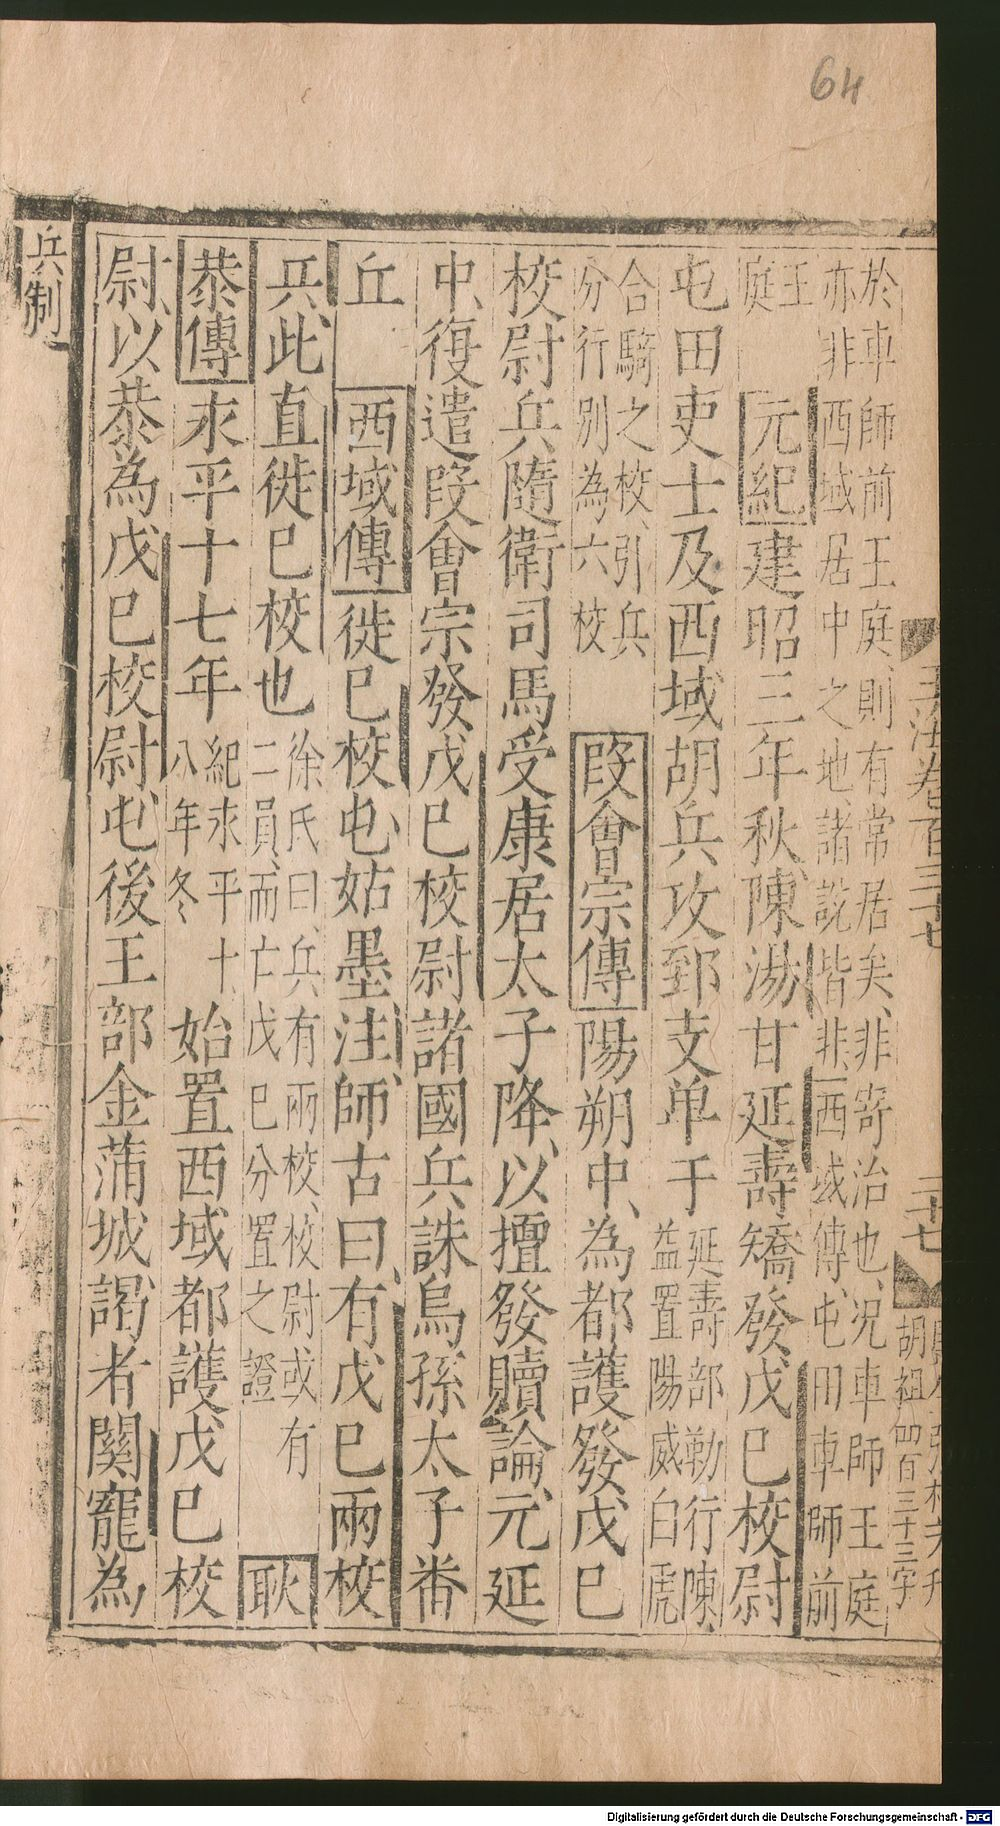 64
玉海卷百三十七
二十七
胡祖四百三十三字
於車師前王庭、則有常居矣、非寄治也、况車師王庭
亦非西域居中之地、諸說皆非、西域傳、屯田車師前
王
庭
元紀建昭三年秋、陳湯甘延壽矯發戊巳校尉
屯田吏士及西域胡兵攻郅支单于
延壽部勒行陳、
益置陽威白虎
合騎之校、引兵
分行別為六校
段會宗傳陽朔中、為都護發戊巳
校尉兵隨衛司馬受康居太子降、以擅發贖論、元延
中、復遣段會宗發戊巳校尉諸國兵誅烏孫太子番
丘
西域傳徙巳校屯、姑墨、注、師古曰、有戊巳兩校
兵、此直徙巳校也
徐氏曰、兵有兩校、校尉或有
二員、而亡戊巳分置之證
耿
恭傳永平十七年
紀永平十
八年冬
始置西域都護戊巳校
尉、以恭為戊巳校尉、屯後王部金蒲城、謁者關寵為
兵制
Digitalisierung gefördert durch die Deutsche Forschungsgemeinschaft - DFG